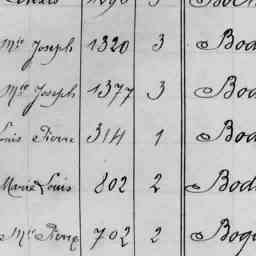 Mie Joseph 1320 3 Bod
Mie Joseph 1377 3 Bod
Louis Pierre 314 1 Bod
Marie Louis 802 2 Bod
Mie Pierre 702 2 Bog